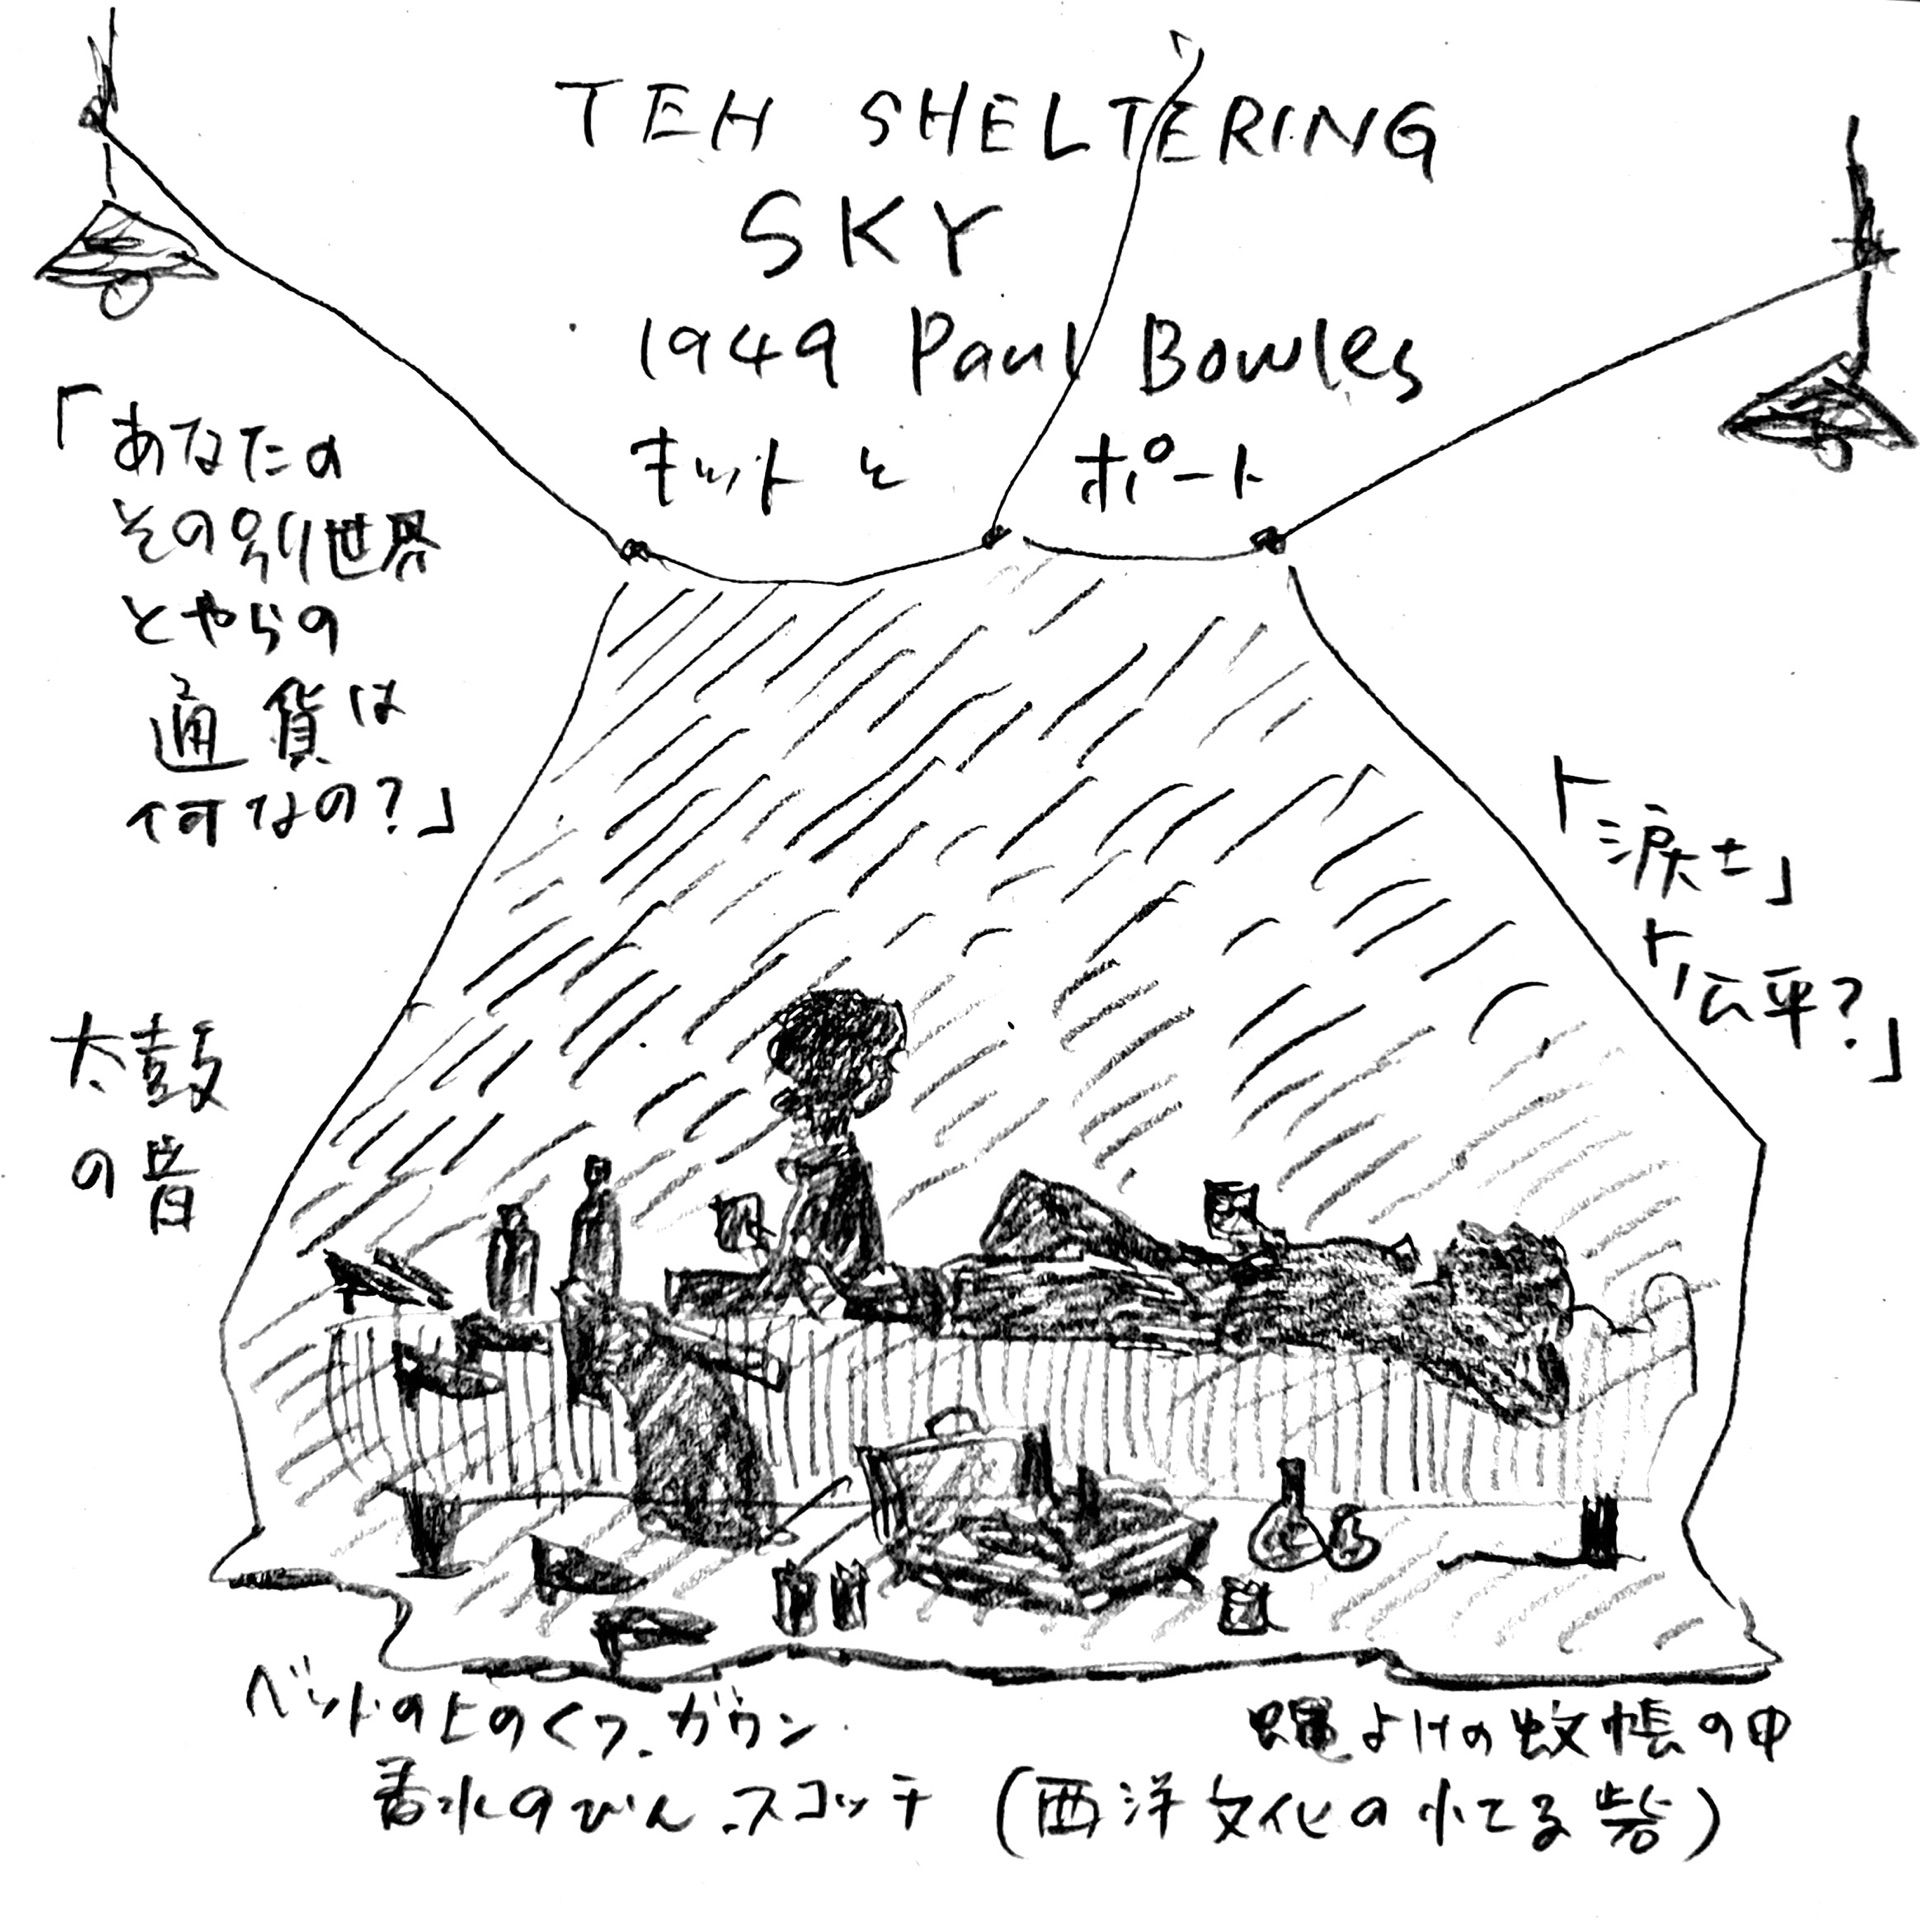 TEH SHELTERING
SKY
1949 Paul Bowles
キットと ポート
「あなたの
その別世界
とやらの
通貨は
何なの?」
「涙士」
「公平?」
太鼓
の音
ベットの上のくつ、ガウン
香水のびん、スコッチ
蠅よけの蚊帳の中
(西洋文化の小てる砦)